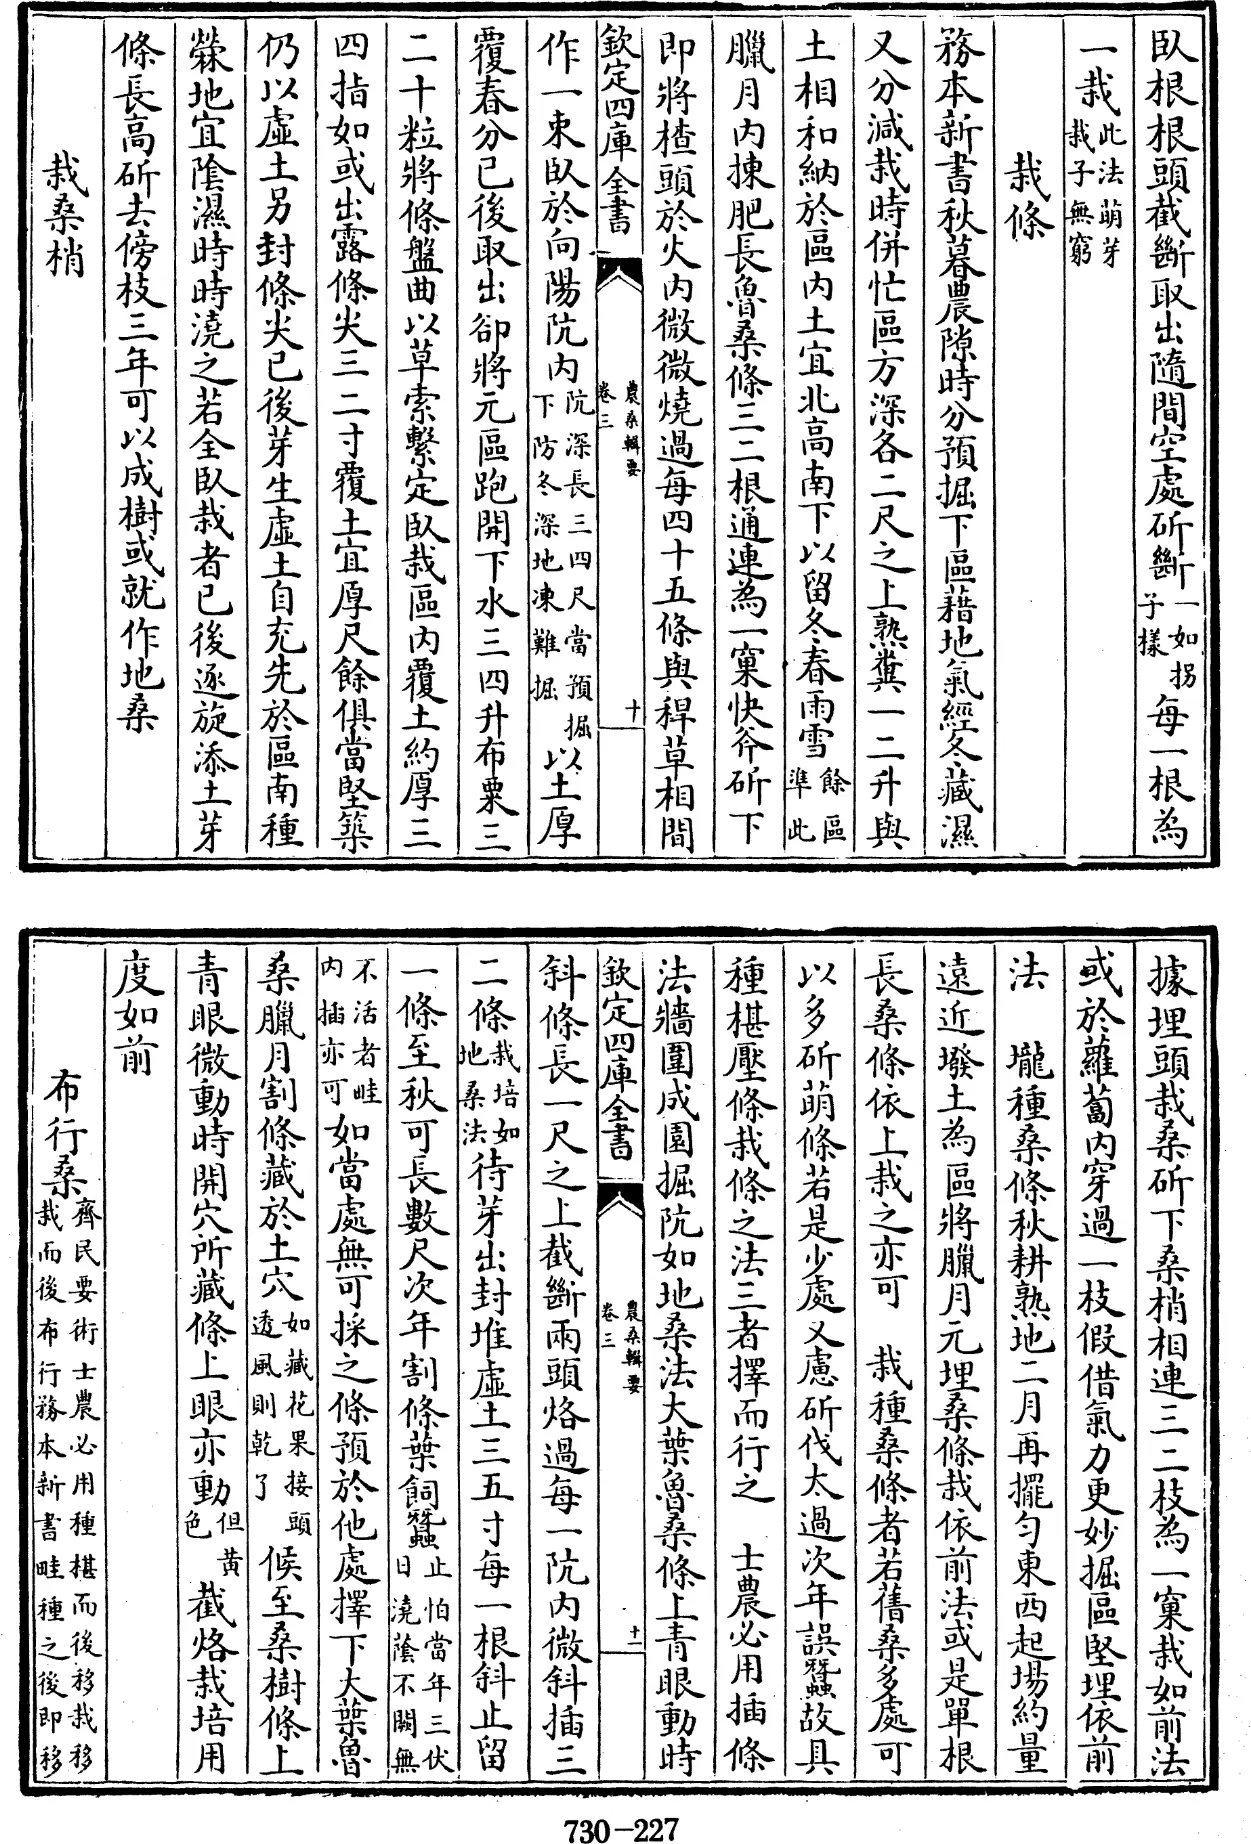 臥根根頭截斷取出隨間空處斫斷一如拐子樣每一根為
一栽此法萌芽栽子無窮
栽條
務本新書秋暮農隙時分預掘下區藉地氣經冬藏濕
又分減栽時併忙區方深各二尺之上熟糞一二升與
土相和納於區內土宜北高南下以留冬春雨雪餘區準此
臘月內揀肥長魯桑條三二根通連為一窠快斧斫下
即將楂頭於火內微微燒過每四十五條與稈草相間
欽定四庫全書
農桑輯要
卷三
十
作一束臥於向陽阬內阬深長三四尺當預掘下防冬深地凍難掘以土厚
覆春分已後取出卻將元區跑開下水三四升布粟三
二十粒將條盤曲以草索繫定臥栽區內覆土約厚三
四指如或出露條尖三二寸覆土宜厚尺餘俱當堅築
仍以虛土另封條尖已後芽生虛土自充先於區南種
檾地宜陰濕時時澆之若全臥栽者已後逐旋添土芽
條長高斫去傍枝三年可以成樹或就作地桑
栽桑梢
據埋頭栽桑斫下桑梢相連三二枝為一窠栽如前法
或於蘿蔔內穿過一枝假借氣力更妙掘區堅埋依前
法　壠種桑條秋耕熟地二月再擺勻東西起埸約量
遠近墢土為區將臘月元埋桑條栽依前法或是單根
長桑條依上栽之亦可　栽種桑條者若舊桑多處可
以多斫萌條若是少處又慮斫伐太過次年誤蠶故具
種椹壓條栽條之法三者擇而行之　士農必用插條
法牆圍成園掘阬如地桑法大葉魯桑條上青眼動時
欽定四庫全書
農桑輯要
卷三
十一
斜條長一尺之上截斷兩頭烙過每一阬內微斜插三
二條栽培如地桑法待芽出封堆虛土三五寸每一根斜止留
一條至秋可長數尺次年割條葉飼蠶止怕當年三伏日澆蔭不闕無
不活者畦內插亦可如當處無可採之條預於他處擇下大葉魯
桑臘月割條藏於土穴如藏花果接頭透風則乾了候至桑樹條上
青眼微動時開穴所藏條上眼亦動但黃色截烙栽培用
度如前
布行桑齊民要術士農必用種椹而後移栽移栽而後布行務本新書畦種之後即移
730-227